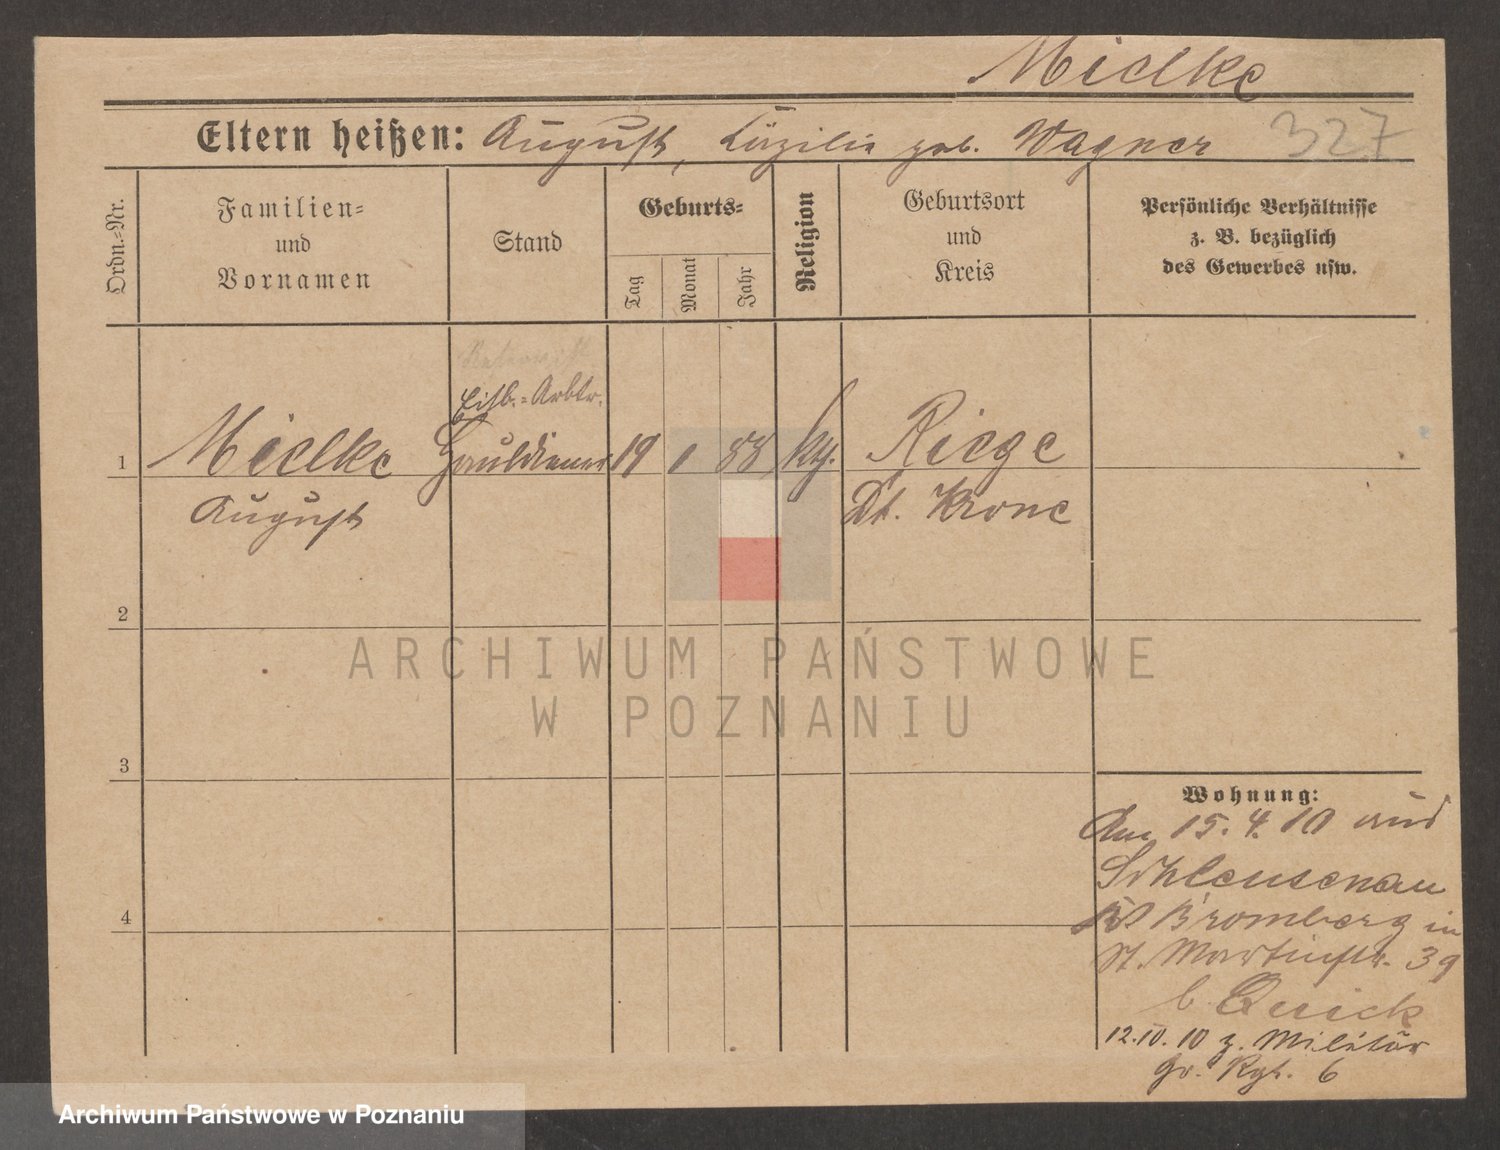 Mielke
Eltern heißen: August, Cäzilie geb. Wagner 327
Ordn.-Nr.
Familien-
und
Vornamen
Stand
Geburts-
Tag
Monat
Jahr
Religion
Geburtsort
und
Kreis
Persönliche Verhältnisse
z. B. bezüglich
des Gewerbes usw.
Eisb.-Arbtr.
1 Mielke 19 1 88 kth. Riege
August Dt. Krone
2
3
4
Wohnung:
Am 15.4.10 aus
Schleusenau
Bromberg in
St. Martinstr. 39
b. Quick
12.10.10 z. Militär
Gr. Rgt. 6
ARCHIWUM PAŃSTWOWE
W POZNANIU
Archiwum Państwowe w Poznaniu